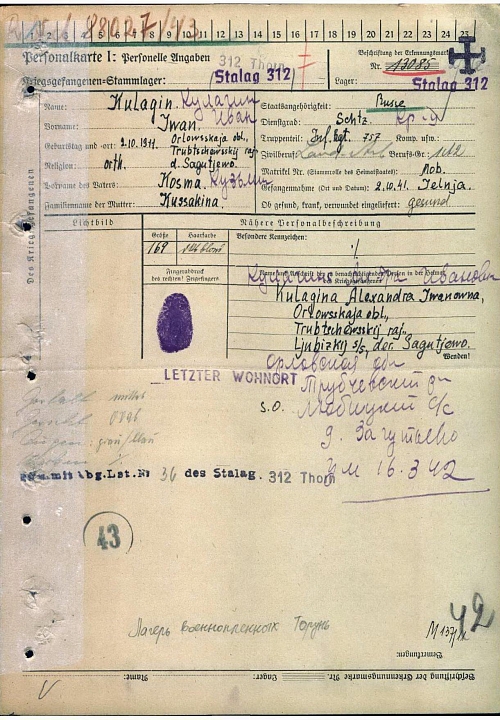 88027/43
1 2 3 4 5 6 7 8 9 10 11 12 13 14 15 16 17 18 19 20 21 22 23 24 25
Personalkarte I: Personelle Angaben
312 Thorn
Beschriftung der Erkennungsmarke
Nr. 13085
Kriegsgefangenen-Stammlager:
Stalag 312
Lager:
Stalag 312
Des Kriegsgefangenen
Name: Kulagin. Кулагин
Vorname: Iwan. Иван
Geburtstag und -ort: 2.10.1911. Orlowskaja obl,
Trubtschewskij raj.
Religion: orth. d. Sagutjewo.
Vorname des Vaters: Kosma. Кузьма
Familienname der Mutter: Kussakina.
Staatsangehörigkeit: Russe
Dienstgrad: Schtz. кр-ц
Truppenteil: Inf. Rgt. 757 Komp. usw.
Zivilberuf: Berufs-Gr.:
Matrikel Nr. (Stammrolle des Heimatstaates): Mob.
Gefangennahme (Ort und Datum): 2.10.41. Jelnja.
Ob gesund, krank, verwundet eingeliefert: gesund
Lichtbild
Nähere Personalbeschreibung
Größe
Haarfarbe
Besondere Kennzeichen:
169
Fingerabdruck
des rechten! Zeigefingers
Name und Anschrift der zu benachrichtigenden Person in der Heimat
des Kriegsgefangenen
Кулагина Ивановна
Kulagina Alexandra Iwanowna,
Orlowskaja obl.,
Trubtschewskij raj.
Ljubizkij s/s, der Sagutjewo.
Wenden!
LETZTER WOHNORT
Орловская об
Трубчевский р-
s.o.
с/с
д. Загутьево
Ум 16.3 42
mit Abg.Lst.Nr 36 des Stalag. 312 Thorn
43
Лагерь военнопленных Торунь
42
Bemerkungen:
Beschriftung der Erkennungsmarke Nr.
Lager:
Name: